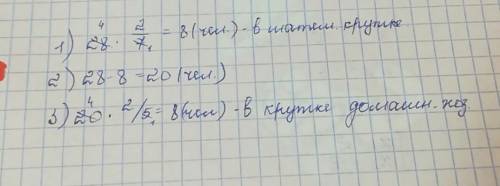 1) 28 · 2/7 = 8 (чел.) - в матем. кружке
2) 28 - 8 = 20 (чел.)
3) 20 · 2/5 = 8 (чел) - в кружке домашн. хоз